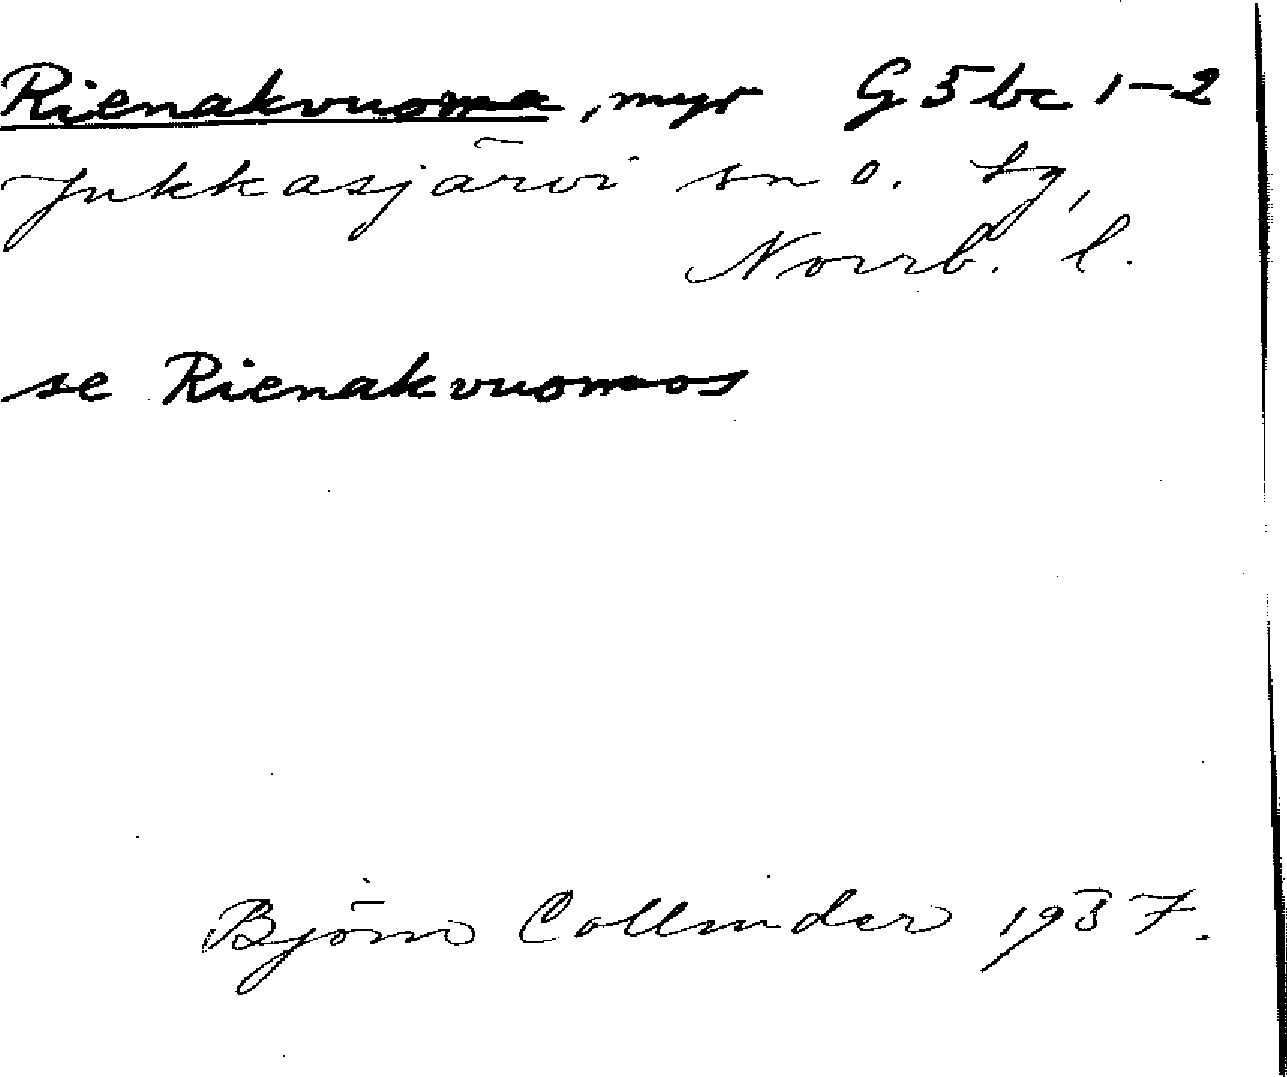 Rienakvuoma, myr G 5 bc 1-2
Jukkasjärvi sn o. tg,
Norrb. l.
se Rienakvuomos
Björn Collinder 1937.